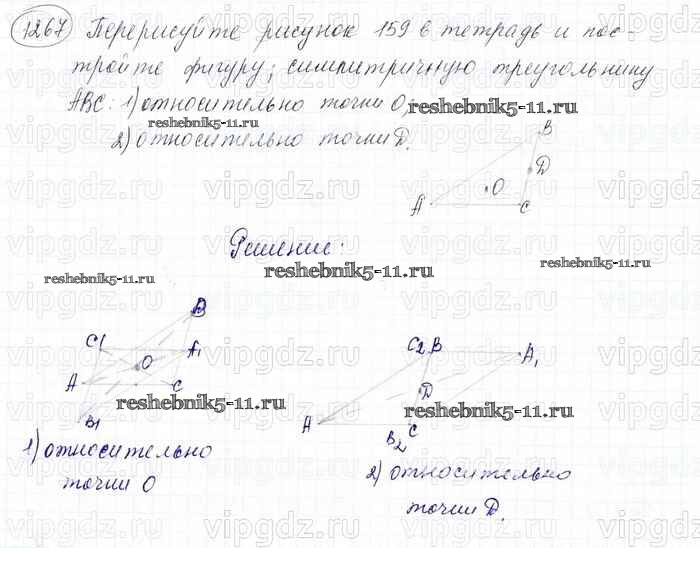 1267 Перерисуйте рисунок 159 в тетрадь и пос-
тройте фигуру, симметричную треугольнику
ABC: 1) относительно точки O;
reshebnik5-11.ru
reshebnik5-11.ru
2) относительно точки D.
B
D
O
A
C
Решение:
reshebnik5-11.ru
reshebnik5-11.ru
reshebnik5-11.ru
B
C1
A1
O
A
C
B1
C2 B
A1
D
A
B2 C
reshebnik5-11.ru
reshebnik5-11.ru
1) относительно
точки O
2) относительно
точки D.
vipgdz.ru vipgdz.ru vipgdz.ru vipgdz.ru